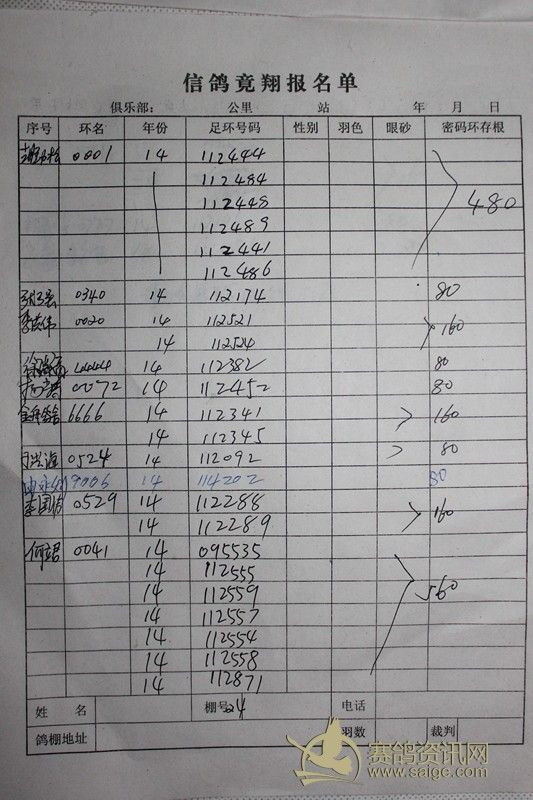 信鸽竟翔报名单
俱乐部： 公里 站 年 月 日
序号 环名 年份 足环号码 性别 羽色 眼砂 密码环存根
0001 14 112444
112484
112448 480
112489
112441
112486
0340 14 112174 80
0020 14 112521 160
14 112524
4444 14 112382 80
0072 14 112452 80
6666 14 112341 160
14 112345
0524 14 112092 80
9006 14 114202 80
李国 0529 14 112288 160
14 112289
何 0041 14 095535
14 112555
14 112559 560
14 112557
14 112554
14 112558
14 112871
姓 名 棚号 24 电话
鸽棚地址 羽数 裁判
赛鸽资讯网
www.saige.com